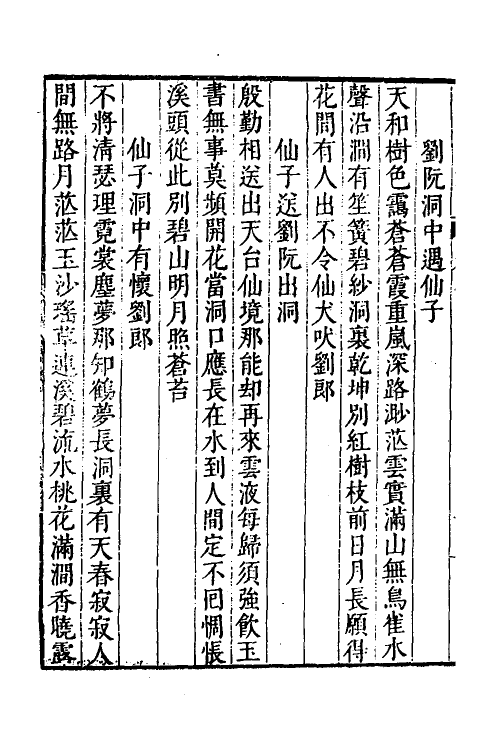 劉阮洞中遇仙子
天和樹色靄蒼蒼霞重嵐深路渺茫雲實滿山無鳥雀水
聲沿澗有笙簧碧紗洞裏乾坤別紅樹枝前日月長願得
花間有人出不令仙犬吠劉郎
仙子送劉阮出洞
殷勤相送出天台仙境那能却再來雲液每歸須強飲玉
書無事莫頻開花當洞口應長在水到人間定不囘惆悵
溪頭從此別碧山明月照蒼苔
仙子洞中有懷劉郎
不將清瑟理霓裳塵夢那知鶴夢長洞裏有天春寂寂人
間無路月茫茫玉沙瑤草連溪碧流水桃花滿澗香曉露